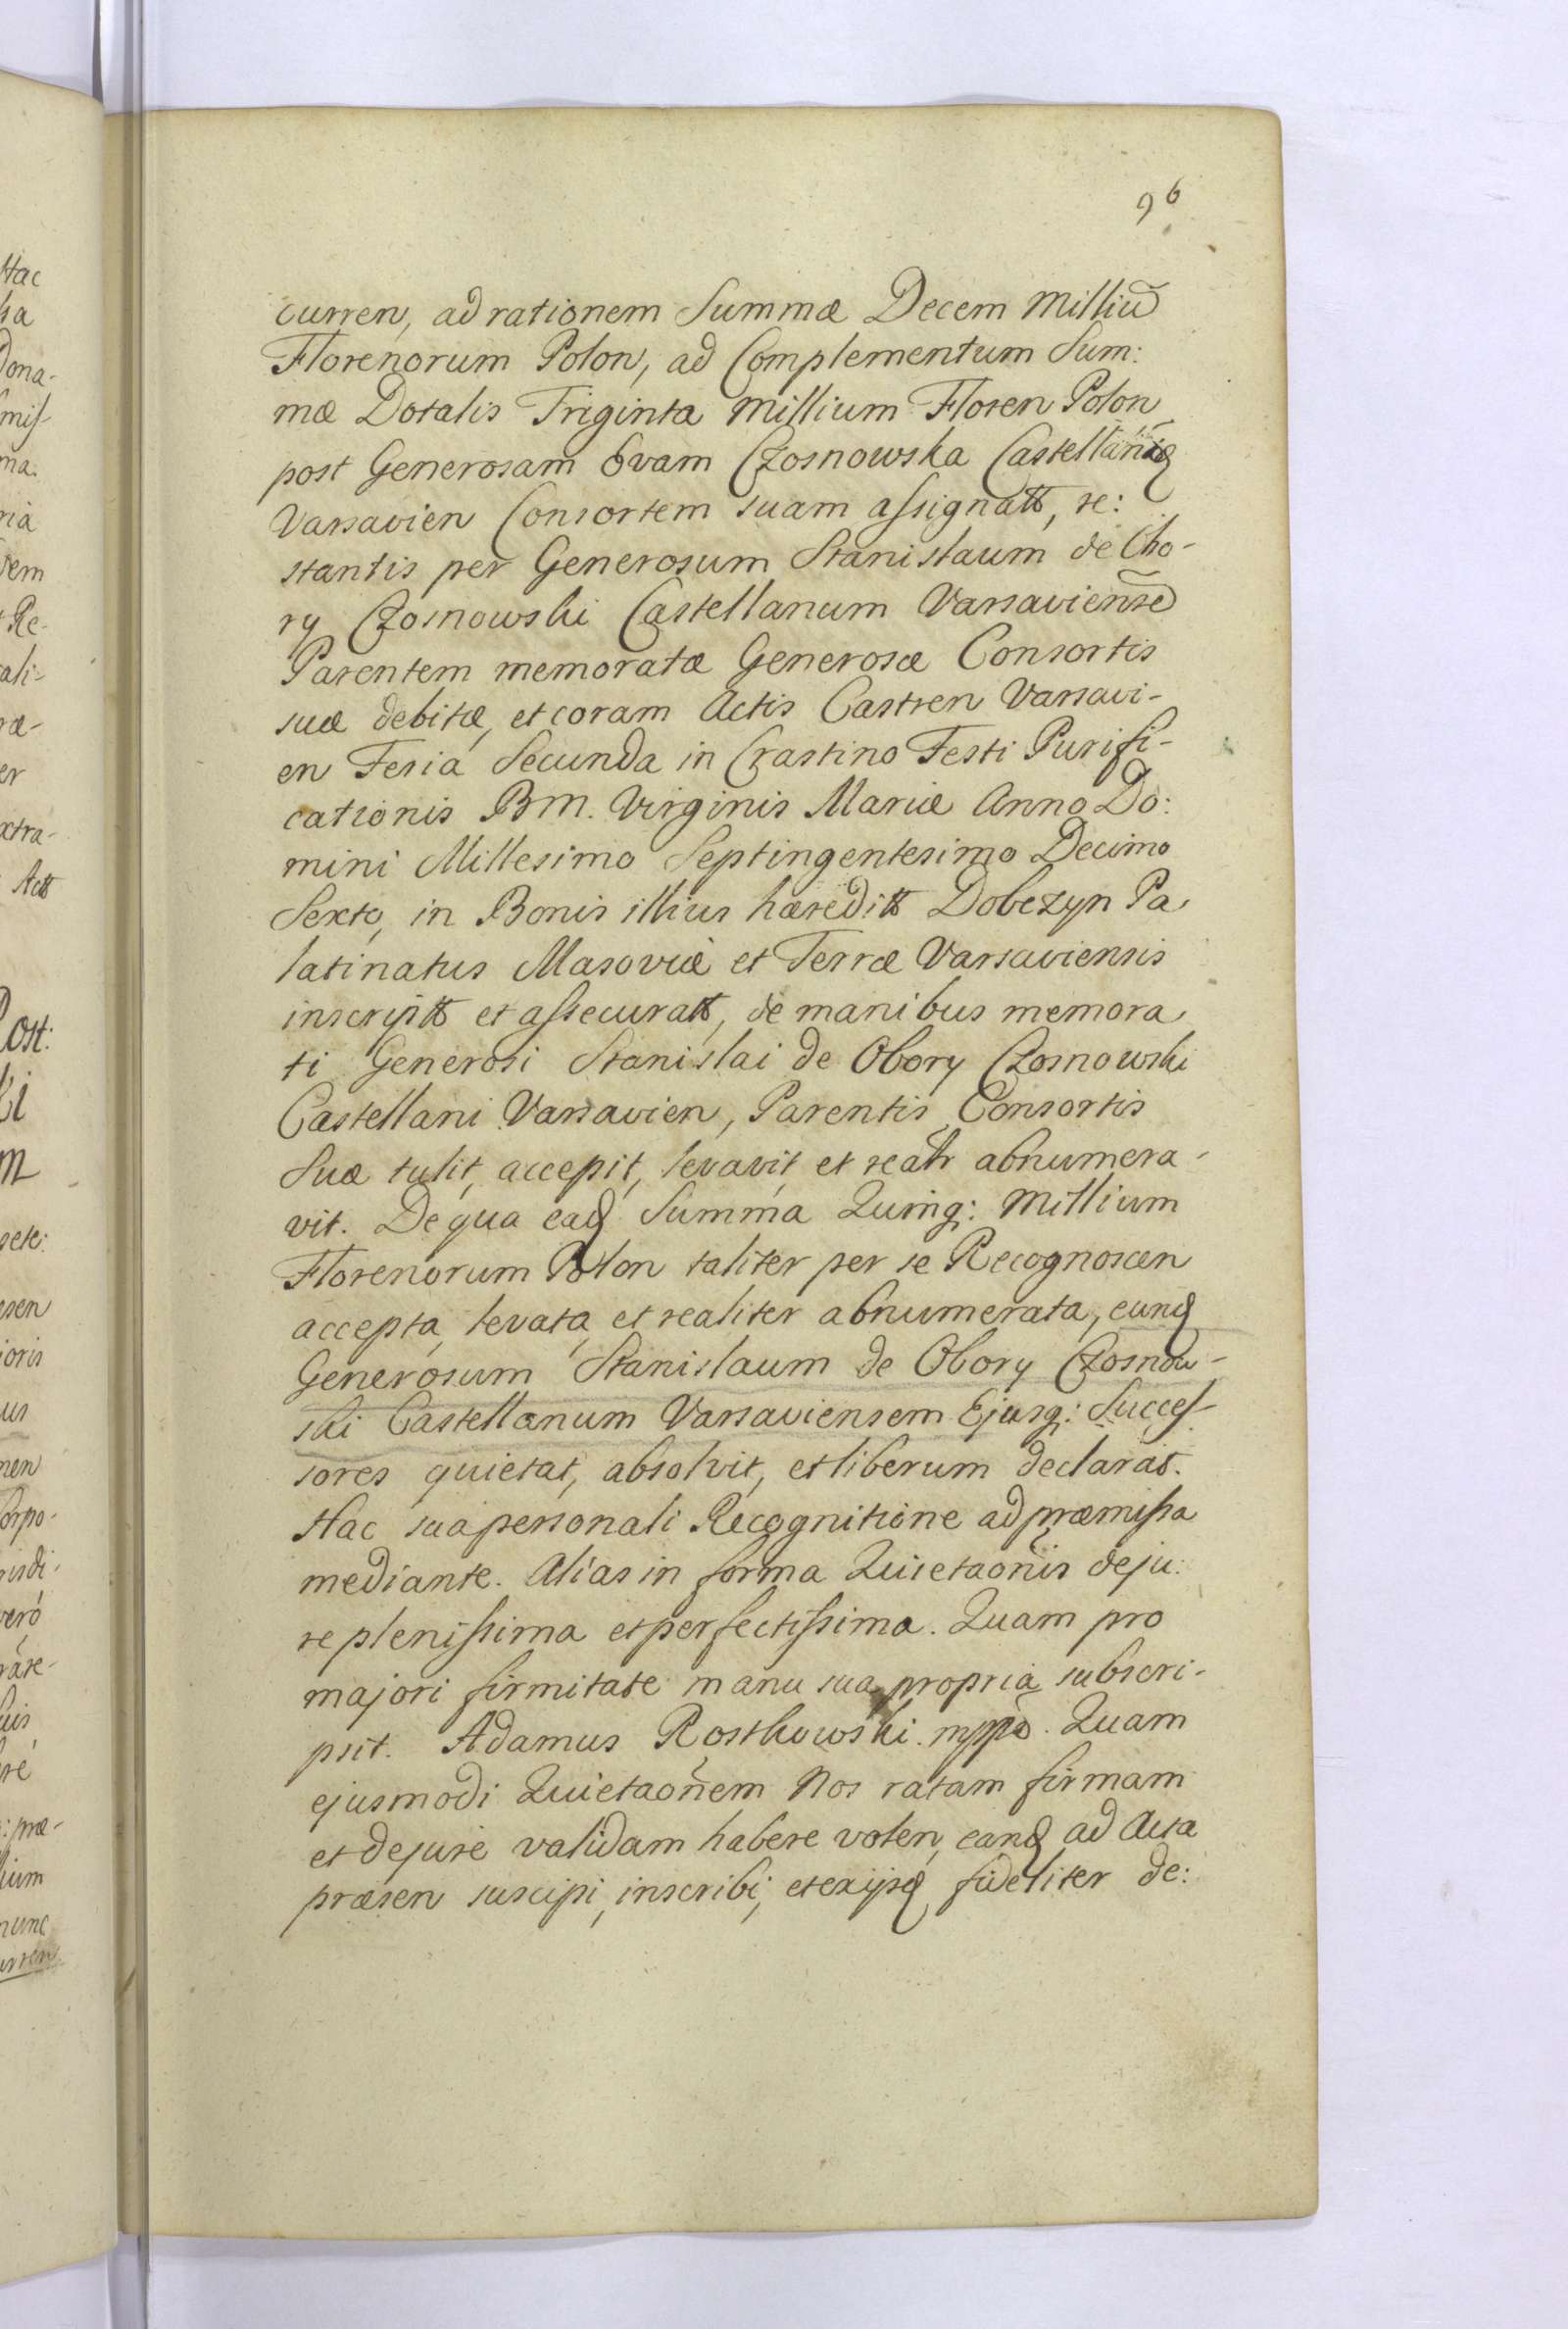 96
curren, ad rationem Summæ Decem Milliũ
Florenorum Polon, ad Complementum Sum:
mæ Dotalis Triginta Millium Floren Polon
post Generosam Evam Czosnowska Castellanię
Varsavien Consortem suam assignatt, re:
stantis per Generosum Stanislaum de Cho-
ry Czosnowski Castellanum Varsaviensẽ
Parentem memoratæ Generosæ Consortis
suæ debitæ, et coram Actis Castren Varsavi-
en Feria Secunda in Crastino Festi Purifi-
cationis B m. Virginis Mariæ Anno Do:
mini Millesimo Septingentesimo Decimo
Sexto, in Bonis illius hæreditt Dobczyn Pa
latinatus Masoviæ et Terræ Varsaviensis
inscriptt et assecuratt, de manibus memora
ti Generosi Stanislai de Obory Czosnowski
Castellani Varsavien, Parentis Consortis
Suæ tulit, accepit, levavit, et realr abnumera-
vit. De qua eaq Summa Quinq: Millium
Florenorum Polon taliter per se Recognoscen
accepta, levata, et realiter abnumerata, eunq
Generosum Stanislaum de Obory Czosnow-
ski Castellanum Varsaviensem Ejusq: Succes-
sores quietat, absolvit, et liberum declarat.
Hac sua personali Recognitione ad præmissa
mediante. Alias in forma Quietaonis de ju:
re plenissima et perfectissima. Quam pro
majori firmitate manu sua propria subscri-
psit. Adamus Rostkowski mppa. Quam
ejusmodi Quietaonem Nos ratam firmam
et de jure validam habere volen, eanq ad Acta
præsen suscipi, inscribi, et exijsq fideliter de: